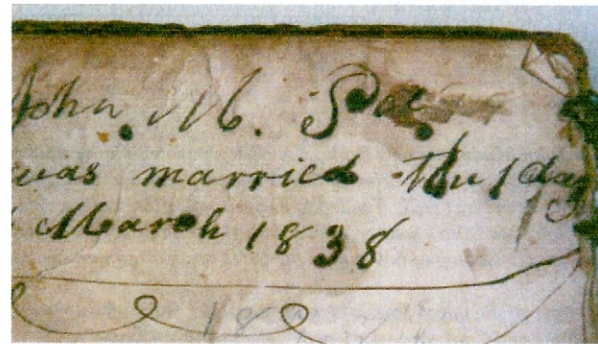 John M. Poe
was married the 1 day
March 1838
18